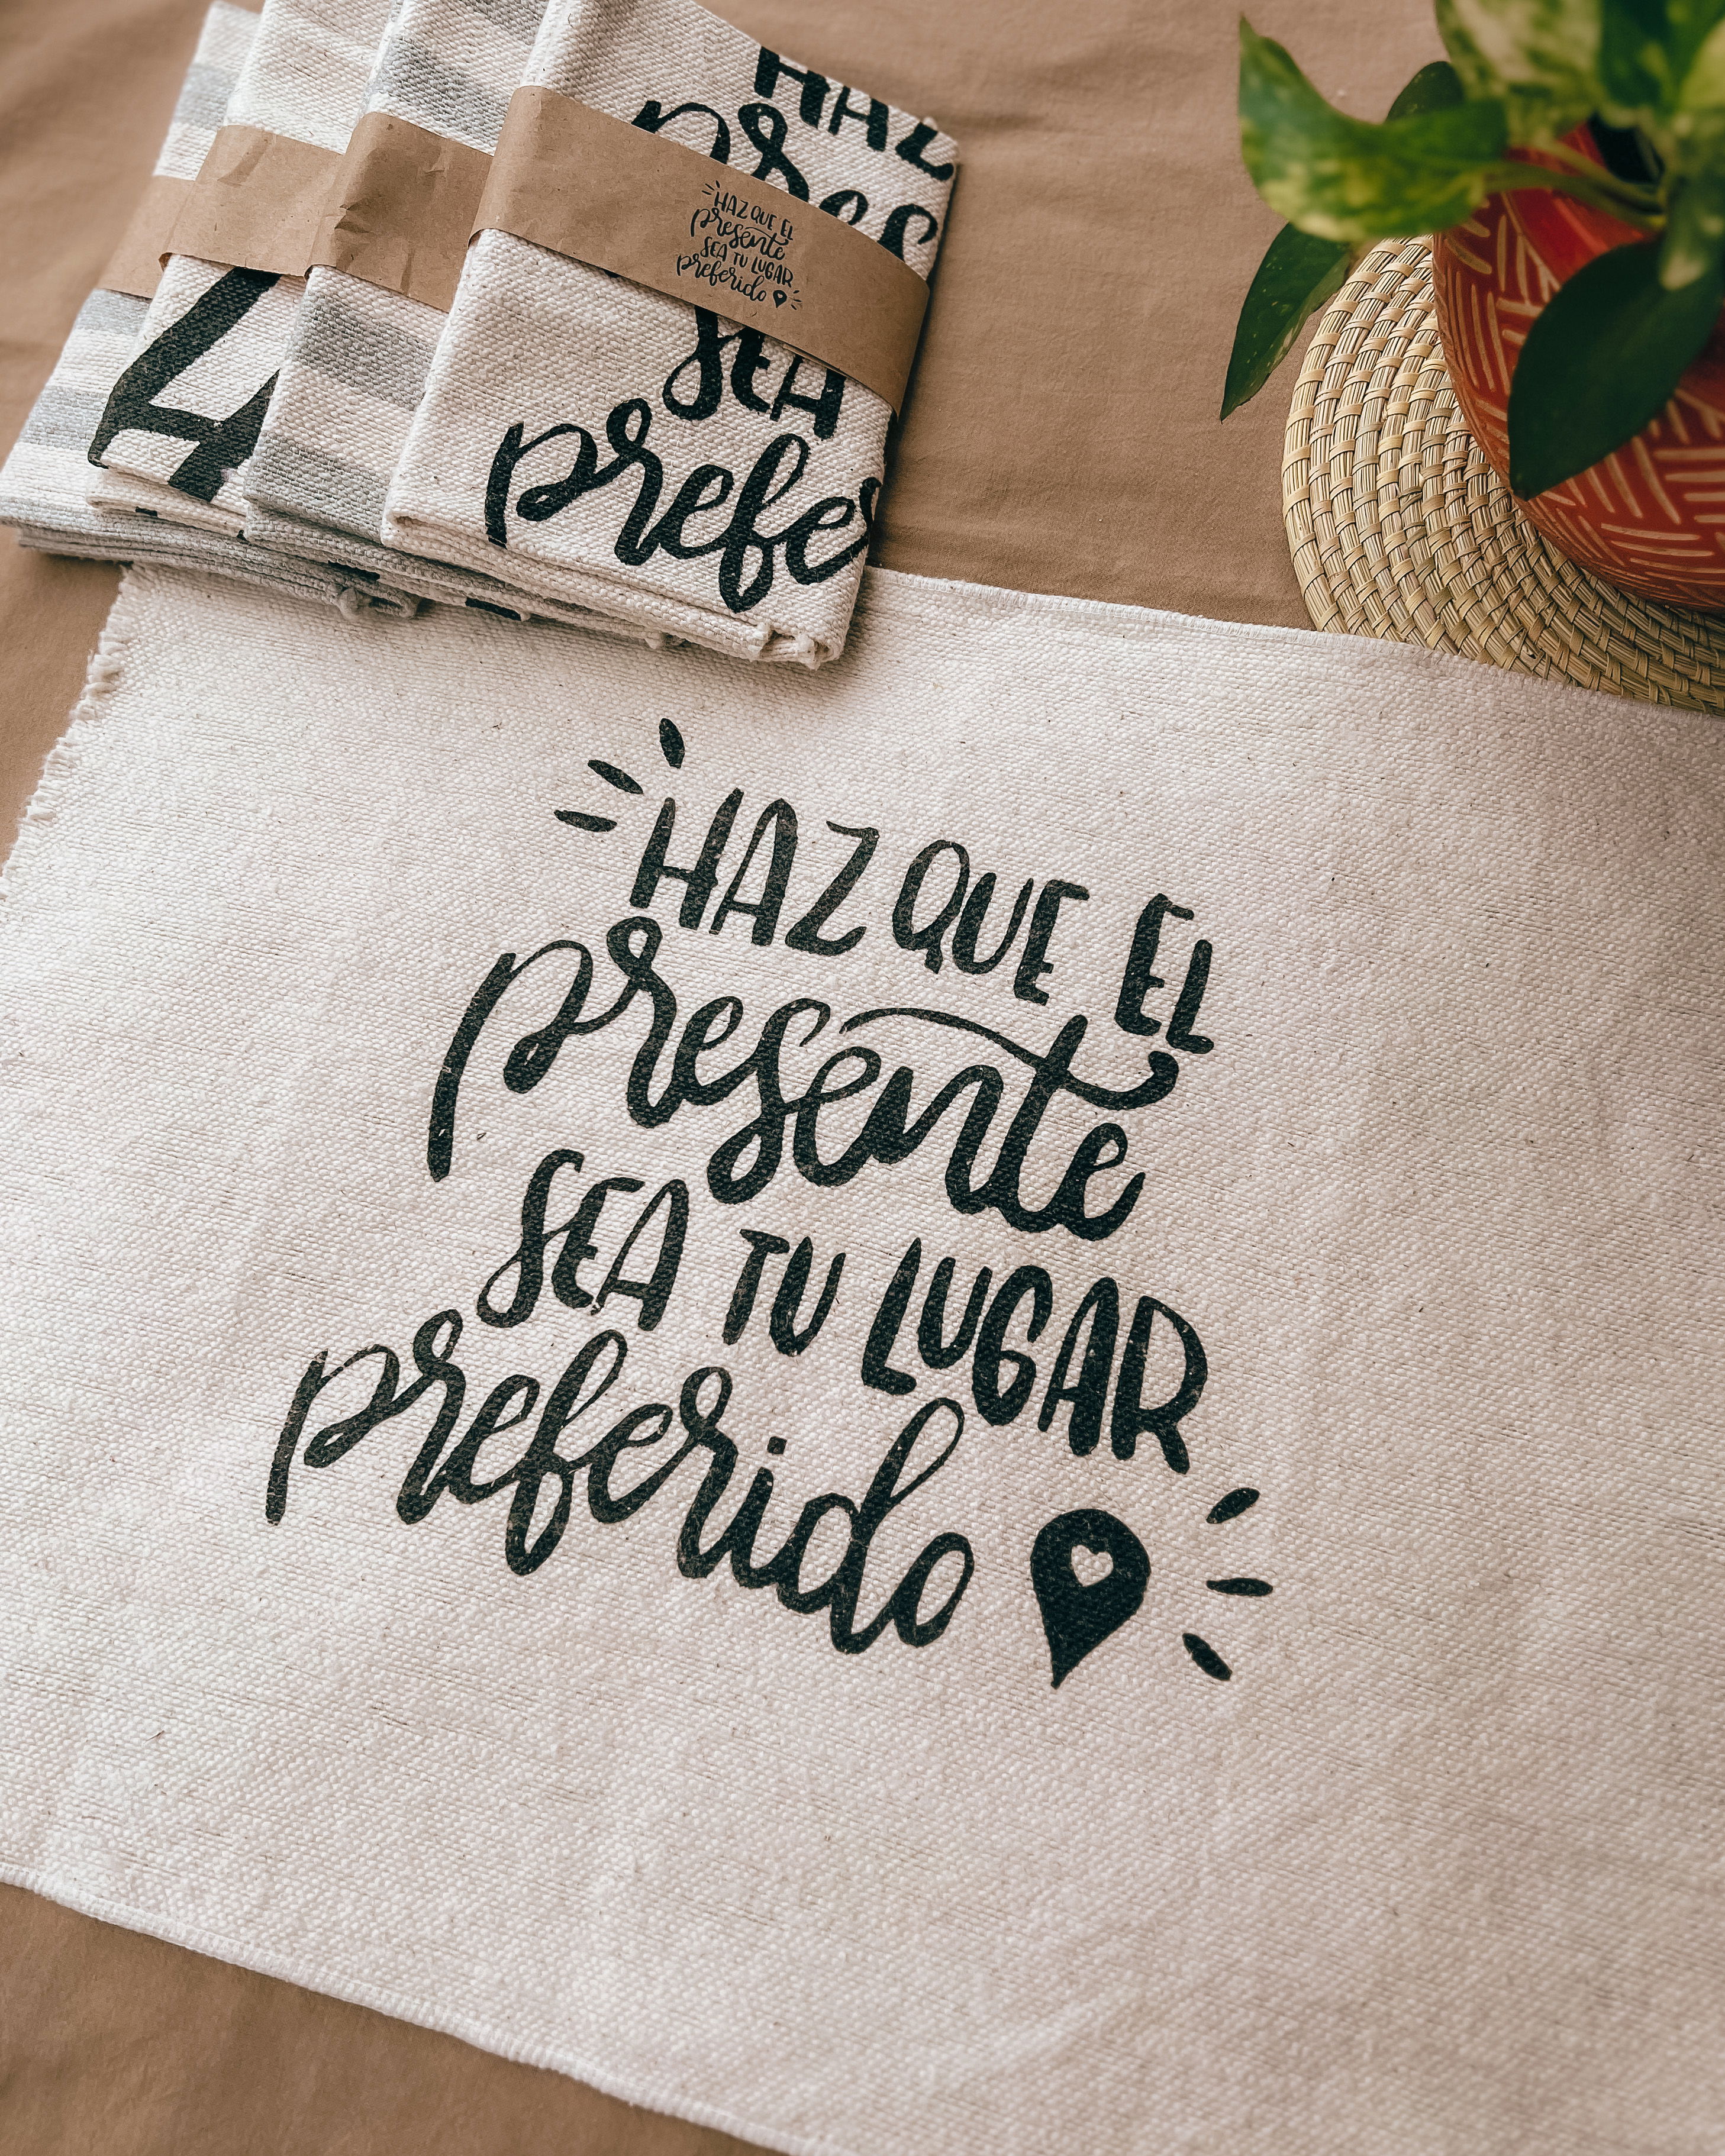 HAZ
prese
SEA
prefer
HAZ QUE EL
presente
SEA TU LUGAR
preferido
HAZ QUE EL
presente
SEA TU LUGAR
preferido